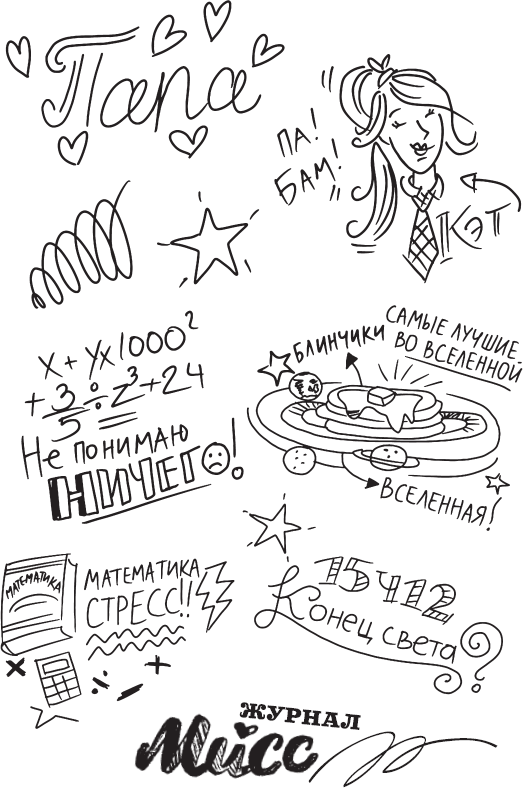 Папа
ПА!
БАМ!
КЭТ
X + УX1000²
+ 3/5 ÷ Z³ + 24
Не ПОНИМАЮ
НИЧЕГО!
БЛИНЧИКИ
САМЫЕ ЛУЧШИЕ
ВО ВСЕЛЕННОЙ
ВСЕЛЕННАЯ!
МАТЕМАТИКА
МАТЕМАТИКА
СТРЕСС!!
15 Ч 12
Конец света?
ЖУРНАЛ
Мисс